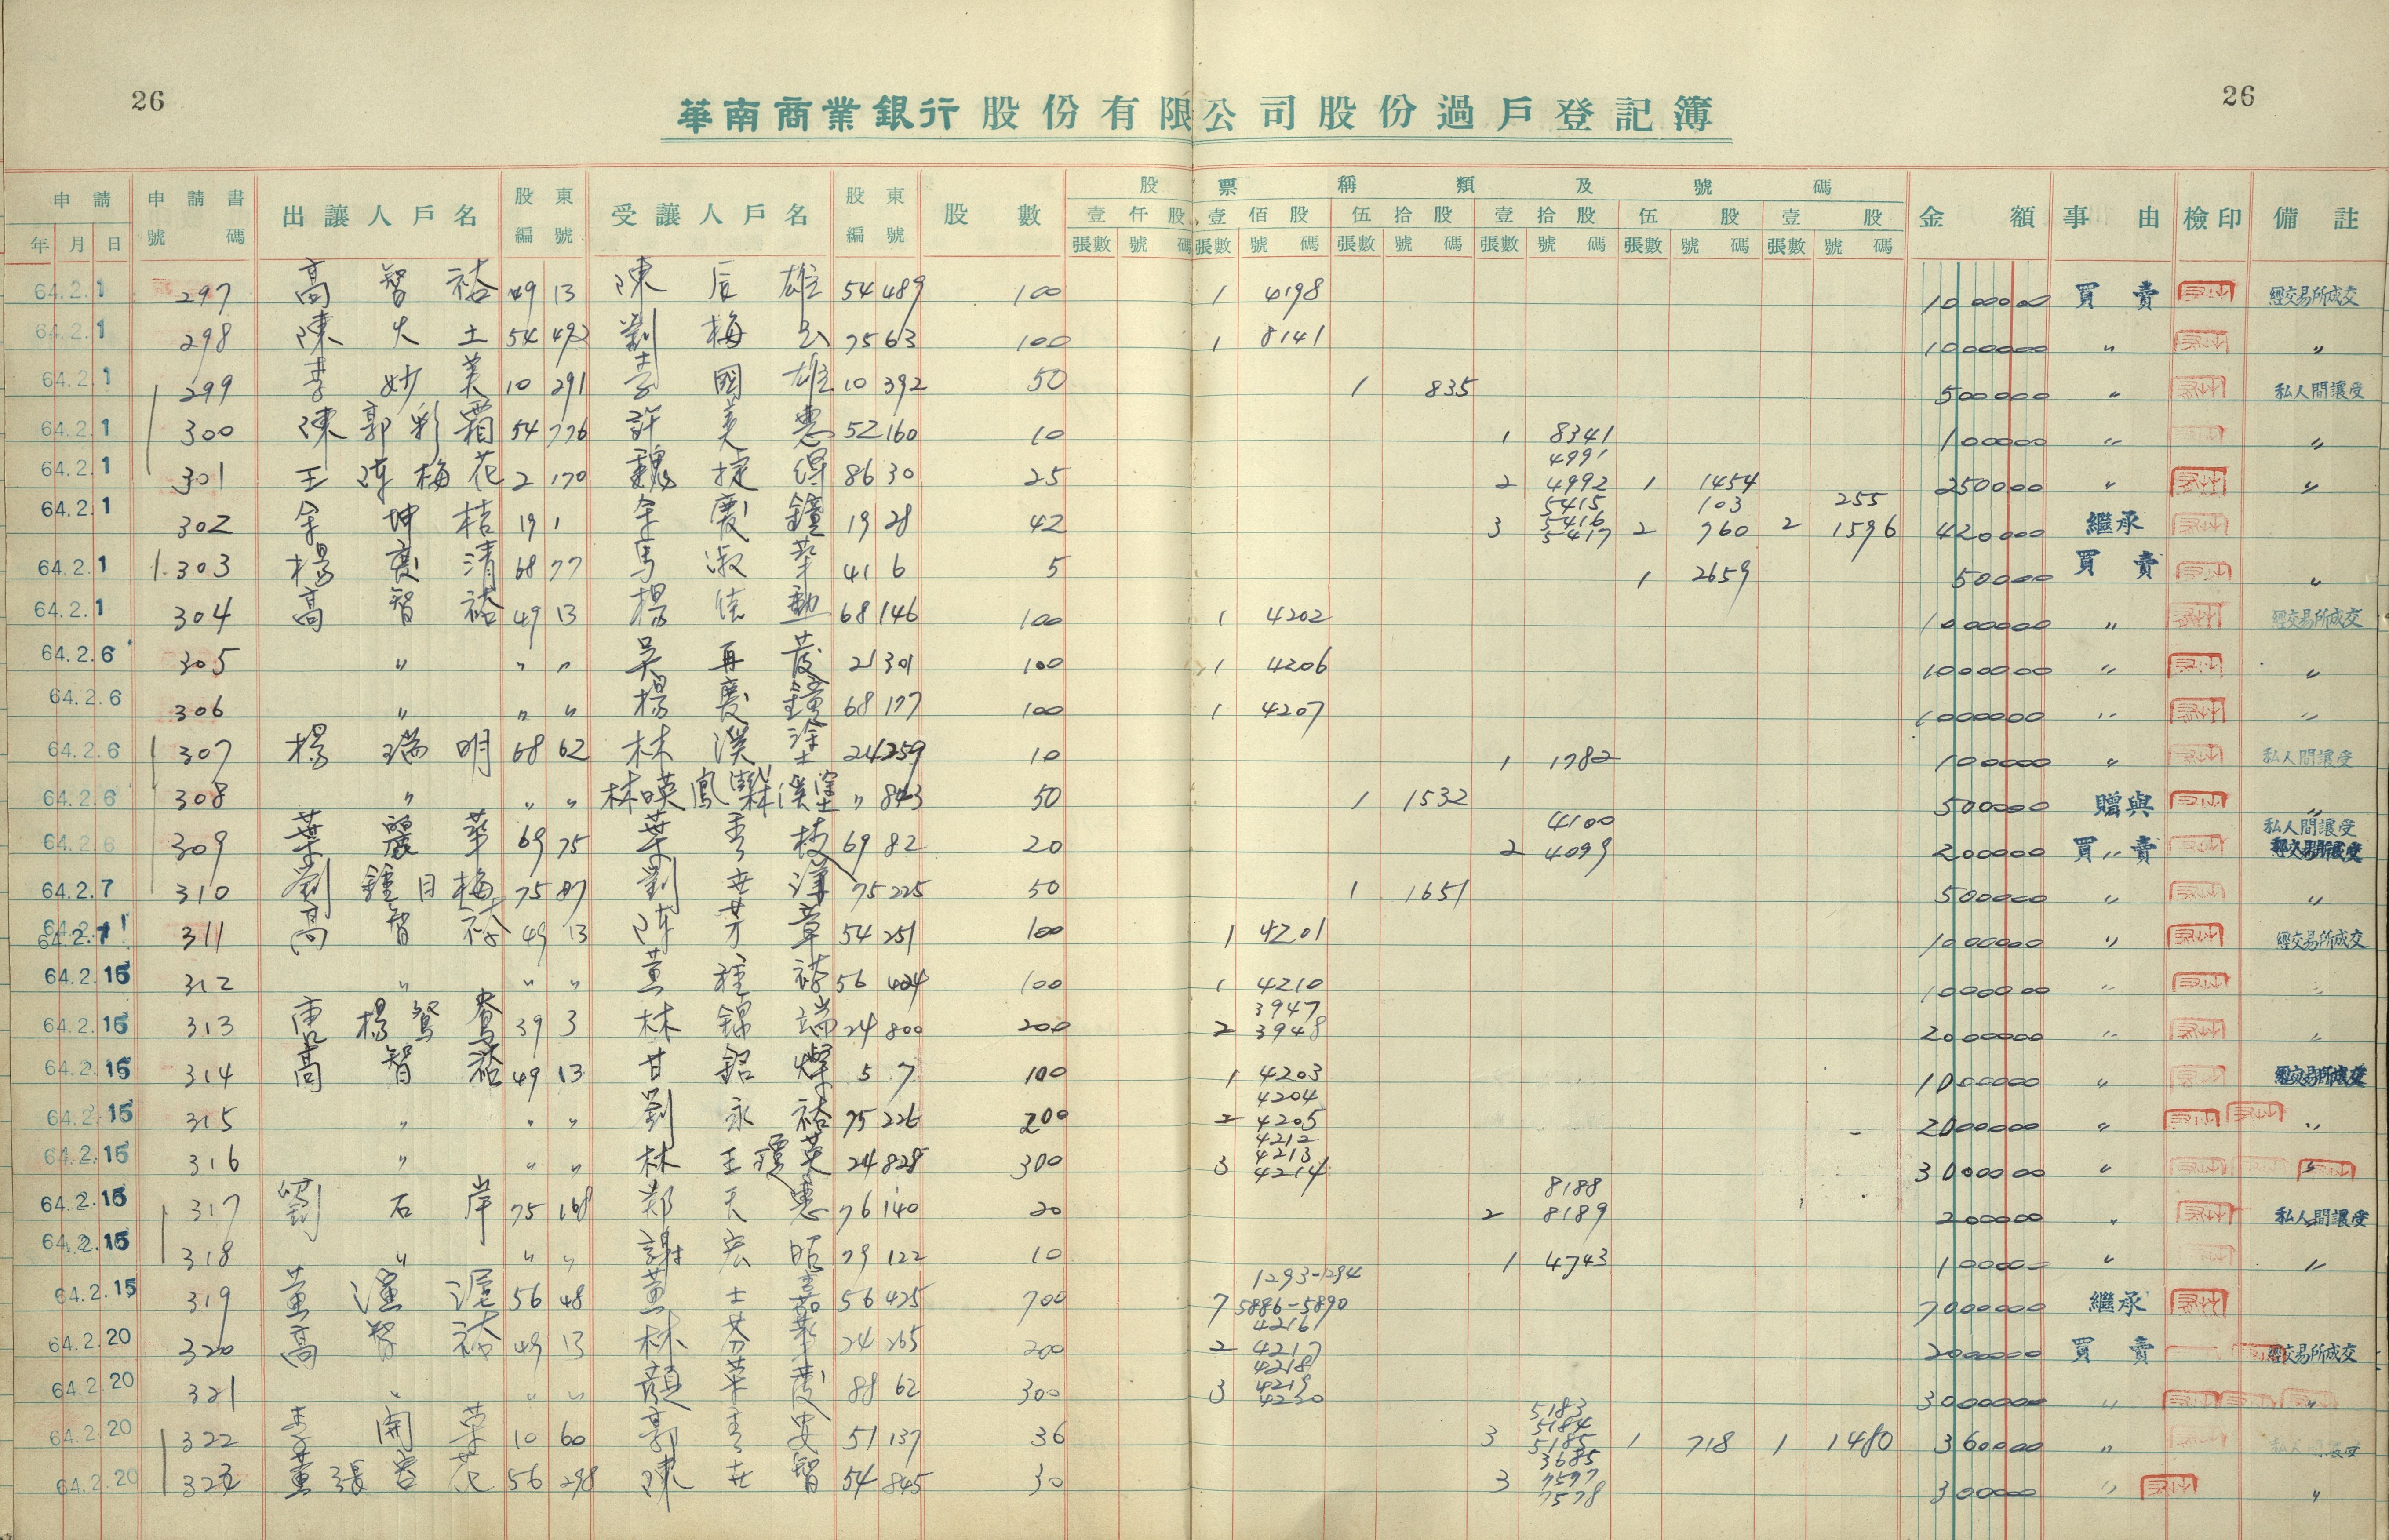 26
26
華南商業銀行股份有限公司股份過戶登記簿
申請 年 月 日 申請書號碼 出讓人戶名 股東編號 受讓人戶名 股東編號 股數 股票稱類及號碼 金額 事由 檢印 備註
壹仟股 壹佰股 伍拾股 壹拾股 伍股 壹股
張數 號碼 張數 號碼 張數 號碼 張數 號碼 張數 號碼 張數 號碼
64.2.1 297 高智裕 49 13 陳辰雄 54 489 100 1 4198 1000000 買賣 經交易所成交
64.2.1 298 陳火土 54 492 劉梅 75 63 100 1 8141 1000000 〃 〃
64.2.1 299 李妙美 10 291 李國雄 10 392 50 1 835 500000 〃 私人間讓受
64.2.1 300 陳郭彩霜 54 776 許美惠 52 160 10 1 8341 100000 〃 〃
64.2.1 301 王陳梅花 2 170 魏 86 30 25 2 4991 4992 1 1454 250000 〃 〃
64.2.1 302 余坤桔 19 1 余慶鐘 19 28 42 3 5415 5416 5417 2 103 760 2 255 1596 420000 繼承
64.2.1 303 楊慶清 68 77 馬淑華 41 6 5 1 2659 50000 買賣 〃
64.2.1 304 高智裕 49 13 楊 勳 68 146 100 1 4202 1000000 〃 經交易所成交
64.2.6 305 〃 〃 〃 吳再發 21 301 100 1 4206 1000000 〃 〃
64.2.6 306 〃 〃 〃 楊慶鐘 68 177 100 1 4207 1000000 〃 〃
64.2.6 307 楊瑞明 68 62 林溪塗 24 259 10 1 1782 100000 〃 私人間讓受
64.2.6 308 〃 〃 〃 林暎鳳 林溪塗 〃 843 50 1 1532 500000 贈與 〃
64.2.6 309 葉麗華 69 75 葉秀枝 69 82 20 2 4100 4099 200000 買賣 私人間讓受
64.2.7 310 劉鍾日梅 75 87 劉 75 225 50 1 1651 500000 〃 〃
311 高智裕 49 13 陳芳章 54 251 100 1 4201 1000000 〃 經交易所成交
64.2.15 312 〃 〃 〃 黃 56 424 100 1 4210 1000000 〃 〃
64.2.15 313 唐楊鴛鴦 39 3 林錦端 24 800 200 2 3947 3948 2000000 〃 〃
64.2.15 314 高智裕 49 13 甘銘燦 5 7 100 1 4203 1000000 〃 經交易所成交
64.2.15 315 〃 〃 〃 劉永裕 75 226 200 2 4204 4205 2000000 〃 〃
64.2.15 316 〃 〃 〃 林王瓊英 24 828 300 3 4212 4213 4214 3000000 〃 〃
64.2.15 317 劉石岸 75 168 鄭天惠 76 140 20 2 8188 8189 200000 〃 私人間讓受
64.2.15 318 〃 〃 〃 謝宏昭 79 122 10 1 4743 100000 〃 〃
64.2.15 319 黃 56 48 黃士 56 425 700 7 1293-1294 5886-5890 7000000 繼承
64.2.20 320 高智裕 49 13 林芬華 24 265 200 2 4216 4217 2000000 買賣 經交易所成交
64.2.20 321 〃 〃 〃 顏華慶 88 62 300 3 4218 4219 4220 3000000 〃 〃
64.2.20 322 李開華 10 60 郭秀安 51 137 36 3 5183 5184 5185 1 718 1 1480 360000 〃 私人間讓受
64.2.20 323 黃張 花 56 298 陳世智 54 845 30 3 3685 7577 7578 300000 〃 〃